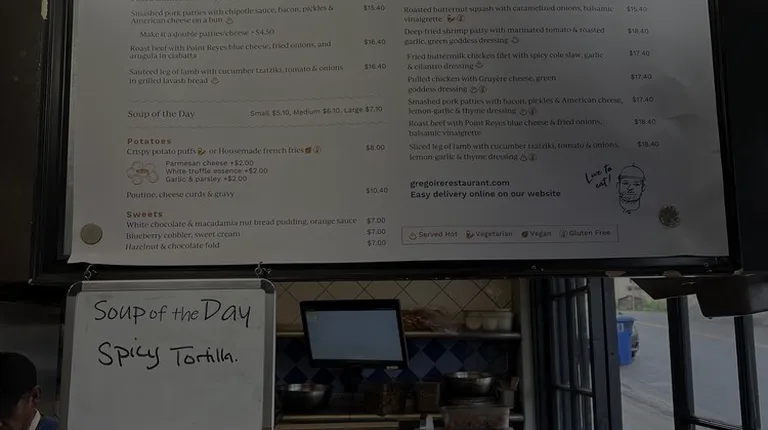 Smashed pork patties with chipotle sauce, bacon, pickles & $15.40
American cheese on a bun
Make it a double patties/cheese +$4.50
Roast beef with Point Reyes blue cheese, fried onions, and $16.40
arugula in ciabatta
Sauteed leg of lamb with cucumber tzatziki, tomato & onions $16.40
in grilled lavash bread
Soup of the Day Small $5.10, Medium $6.10, Large $7.10
Potatoes
Crispy potato puffs or Housemade french fries $8.00
Parmesan cheese +$2.00
White truffle essence +$2.00
Garlic & parsley +$2.00
Poutine, cheese curds & gravy $10.40
Sweets
White chocolate & macadamia nut bread pudding, orange sauce $7.00
Blueberry cobbler, sweet cream $7.00
Hazelnut & chocolate fold $7.00
Roasted butternut squash with caramelized onions, balsamic $15.40
vinaigrette
Deep-fried shrimp patty with marinated tomato & roasted $18.40
garlic, green goddess dressing
Fried buttermilk chicken filet with spicy cole slaw, garlic $17.40
& cilantro dressing
Pulled chicken with Gruyère cheese, green $17.40
goddess dressing
Smashed pork patties with bacon, pickles & American cheese, $17.40
lemon-garlic & thyme dressing
Roast beef with Point Reyes blue cheese & fried onions, $18.40
balsamic vinaigrette
Sliced leg of lamb with cucumber tzatziki, tomato & onions, $18.40
lemon-garlic & thyme dressing
gregoirerestaurant.com
Easy delivery online on our website
Live to
eat!
Served Hot Vegetarian Vegan Gluten Free
Soup of the Day
Spicy Tortilla.